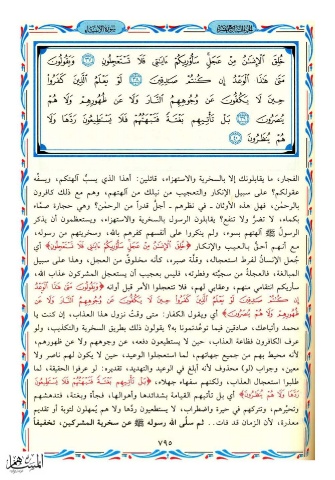 الجزء السابع عشر
سورة الأنبياء
خُلِقَ ٱلْإِنسَٰنُ مِنْ عَجَلٍۢ سَأُو۟رِيكُمْ ءَايَٰتِى فَلَا تَسْتَعْجِلُونِ ﴿٣٧﴾ وَيَقُولُونَ
مَتَىٰ هَٰذَا ٱلْوَعْدُ إِن كُنتُمْ صَٰدِقِينَ ﴿٣٨﴾ لَوْ يَعْلَمُ ٱلَّذِينَ كَفَرُوا۟
حِينَ لَا يَكُفُّونَ عَن وُجُوهِهِمُ ٱلنَّارَ وَلَا عَن ظُهُورِهِمْ وَلَا هُمْ
يُنصَرُونَ ﴿٣٩﴾ بَلْ تَأْتِيهِم بَغْتَةً فَتَبْهَتُهُمْ فَلَا يَسْتَطِيعُونَ رَدَّهَا وَلَا
هُمْ يُنظَرُونَ ﴿٤٠﴾
الفجار، ما يقابلونك إلا بالسخرية والاستهزاء، قائلين: أهذا الذي يسبّ آلهتكم، ويسفّه
عقولكم؟ على سبيل الإنكار والتعجيب من نيلك من آلهتهم، وهم مع ذلك كافرون
بالرحمن، فهل هذه الأوثان ـ في نظرهم ـ أجلّ قدراً من الرحمن؟ وهي حجارة صمّاء
بكماء، لا تضرّ ولا تنفع؟ يقابلون الرسول بالسخرية والاستهزاء، ويستعظمون أن يذكر
الرسول ﷺ آلهتهم بسوء، ولم ينكروا على أنفسهم كفرهم بالله، وسخريتهم من رسوله،
مع أنهم أحقّ بالعيب والإنكار ﴿خُلِقَ ٱلْإِنسَٰنُ مِنْ عَجَلٍ سَأُو۟رِيكُمْ ءَايَٰتِى فَلَا تَسْتَعْجِلُونِ﴾ أي
جُعل الإنسان لفرط استعجاله، وقلّة صبره، كأنه مخلوقٌ من العجل، وهذا على سبيل
المبالغة، فالعجلة من سجيّته وفطرته، فليس بعجيب أن يستعجل المشركون عذاب الله،
سأريكم انتقامي منهم، وعقابي لهم، فلا تتعجلوا الأمر قبل أوانه ﴿وَيَقُولُونَ مَتَىٰ هَٰذَا ٱلْوَعْدُ
إِن كُنتُمْ صَٰدِقِينَ لَوْ يَعْلَمُ ٱلَّذِينَ كَفَرُوا۟ حِينَ لَا يَكُفُّونَ عَن وُجُوهِهِمُ ٱلنَّارَ وَلَا عَن
ظُهُورِهِمْ وَلَا هُمْ يُنصَرُونَ﴾ أي ويقول الكفار: متى وقتُ نزول هذا العذاب، إن كنت يا
محمد وأتباعك، صادقين فيما توعّدتمونا به؟ يقولون ذلك بطريق السخرية والتكذيب، ولو
عرف الكافرون فظاعة العذاب، حين لا يستطيعون دفعه، عن وجوههم ولا عن ظهورهم،
لأنه محيط بهم من جميع جهاتهم، لما استعجلوا الوعيد، حين لا يكون لهم ناصر ولا
معين، وجواب (لو) محذوف لأنه أبلغ في الوعيد والتهديد، تقديره: لو عرفوا الحقيقة، لما
طلبوا استعجال العذاب، ولكنهم سفهاء جهلاء، ﴿بَلْ تَأْتِيهِم بَغْتَةً فَتَبْهَتُهُمْ فَلَا يَسْتَطِيعُونَ
رَدَّهَا وَلَا هُمْ يُنظَرُونَ﴾ أي بل تأتيهم القيامة بشدائدها وأهوالها، فجأة وبغتة، فتدهشهم
وتحيّرهم، وتتركهم في حيرة واضطراب، لا يستطيعون ردّها ولا هم يُمهلون لتوبة أو تقديم
معذرة، لأن الزمان قد فات.. ثم سلّى الله رسوله ﷺ عن سخرية المشركين، تخفيفاً
٧٩٥